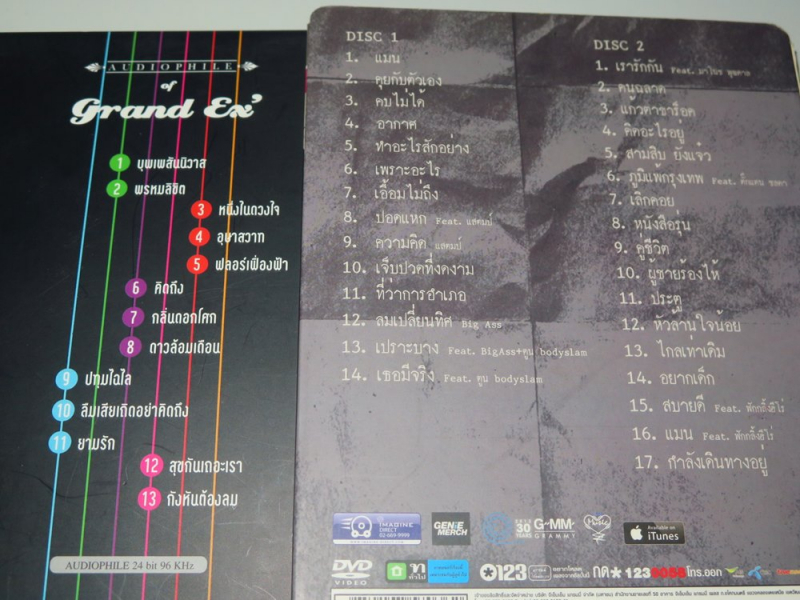 AUDIOPHILE
of
Grand Ex'
1 บุพเพสันนิวาส
2 พรหมลิขิต
3 หนึ่งในดวงใจ
4 อุษาสวาท
5 ฟลอร์เฟื่องฟ้า
6 คิดถึง
7 กลิ่นดอกโศก
8 ดาวล้อมเดือน
9 ปทุมไฉไล
10 ลืมเสียเถิดอย่าคิดถึง
11 ยามรัก
12 สุขกันเถอะเรา
13 กังหันต้องลม
AUDIOPHILE 24 bit 96 KHz
DISC 1
1. แมน
2. คุยกับตัวเอง
3. คบไม่ได้
4. อากาศ
5. ทำอะไรสักอย่าง
6. เพราะอะไร
7. เอื้อมไม่ถึง
8. ปอดแหก Feat. แสตมป์
9. ความคิด แสตมป์
10. เจ็บปวดที่งดงาม
11. ที่ว่าการอำเภอ
12. ลมเปลี่ยนทิศ Big Ass
13. เปราะบาง Feat. BigAss+ตูน bodyslam
14. เธอมีจริง Feat. ตูน bodyslam
DISC 2
1. เรารักกัน Feat.
2. คนฉลาด
3. แก้วตาขาร็อค
4. คิดอะไรอยู่
5. สามสิบ ยังแจ๋ว
6. ภูมิแพ้กรุงเทพ Feat. ตั๊กแตน ชลดา
7. เลิกคอย
8. หนังสือรุ่น
9. คู่ชีวิต
10. ผู้ชายร้องไห้
11. ประตู
12. หัวล้านใจน้อย
13. ไกลเท่าเดิม
14. อยากเด็ก
15. สบายดี Feat. ฟักกลิ้งฮีโร่
16. แมน Feat. ฟักกลิ้งฮีโร่
17. กำลังเดินทางอยู่
IMAGINE
DIRECT
02-669-9999
GENIE
MERCH
30
YEARS
G"MM'
GRAMMY
Music
Available on
iTunes
DVD
VIDEO
ท
ทั่วไป
*123
กด*1239058โทร.ออก